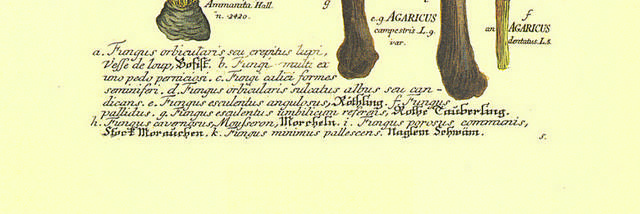 Ammanita Hall.
n. 2420.
g
e.g AGARICUS
campestris L.g.
var.
f
an AGARICUS
dentatus. L.s.
a. Fungus orbicularis seu crepitus lupi,
Vesse de loup, Bofist. b. Fungi mult: ex
uno pedo perniciosi. c. Fungi calici formes
seminiferi. d. Fungus orbicularis sulcatus albus seu can-
dicans. e. Fungus esculentus angulosus, Röthling. f. Fungus
pallidus. g. Fungus esculentus umbilicum referens, Rothe Täuberling.
h. Fungus cavernosus, Mousseron, Morcheln. i. Fungus porosus, communis,
Stock Morauchen. k. Fungus minimus pallescens. Naglem Schwäm.
s.